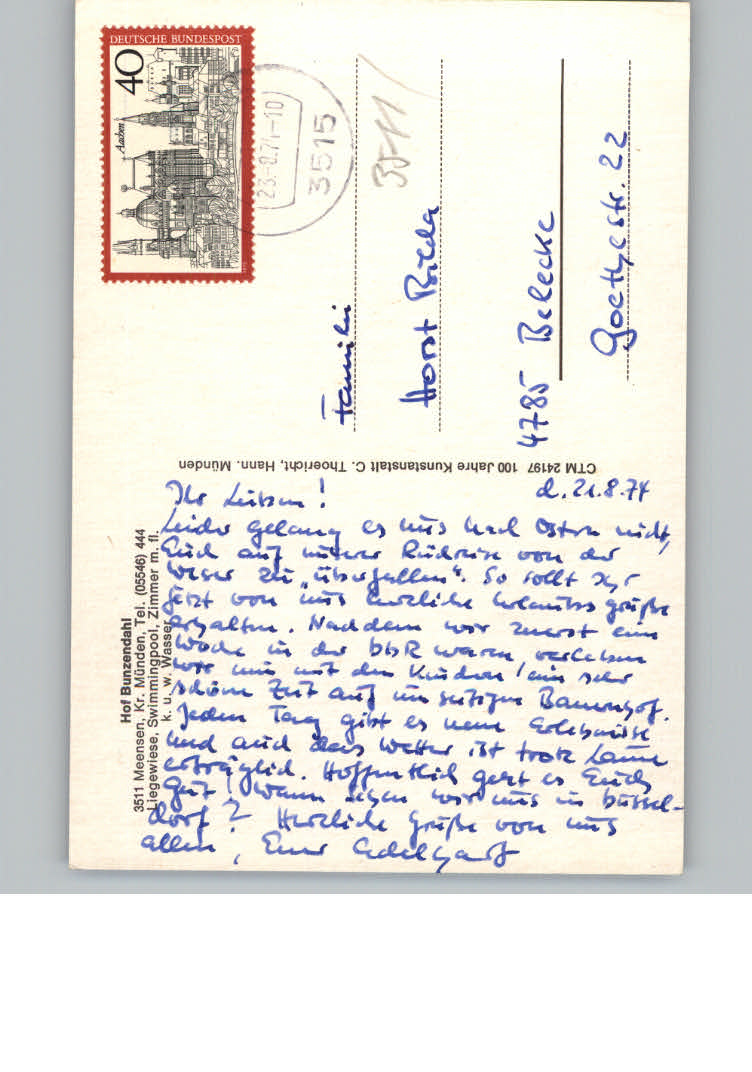 DEUTSCHE BUNDESPOST
40
Aachen
23.-8.74-10
3515
3511
Familie
Horst
4785 Belecke
Goethestr. 22
CTM 24197 100 Jahre Kunstanstalt C. Thoericht, Hann. Münden
Hof Bunzendahl
3511 Meensen, Kr. Münden, Tel. (05546) 444
Liegewiese, Swimmingpool, Zimmer m. fl.
k. u. w. Wasser
d. 21.8.74
Ihr Lieben!
Leider gelang es uns nach Ostern nicht,
Euch auf unserer Rückreise von der
Weser zu "überfallen". So sollt Ihr
jetzt von uns herzliche Urlaubsgrüße
erhalten. Nachdem wir zuerst eine
Woche in der DDR waren, verleben
wir nun mit den Kindern eine sehr
schöne Zeit auf einem Bauernhof.
Jeden Tag gibt es neue Erlebnisse
und auch das Wetter ist trotz Laune
erträglich. Hoffentlich geht es Euch
gut! Wann sehen wir uns in Düssel-
dorf? Herzliche Grüße von uns
allen, Eure